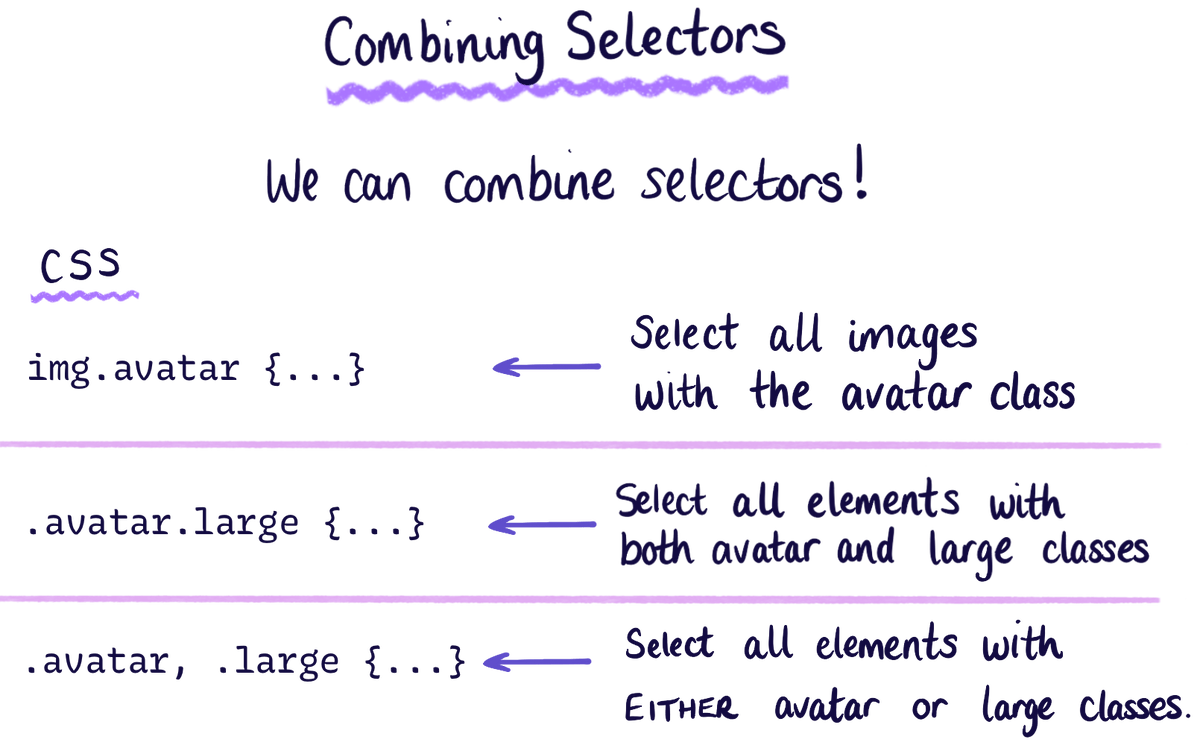 Combining Selectors
We can combine selectors!
CSS
img.avatar {...}
Select all images
with the avatar class
.avatar.large {...}
Select all elements with
both avatar and large classes
.avatar, .large {...}
Select all elements with
EITHER avatar or large classes.